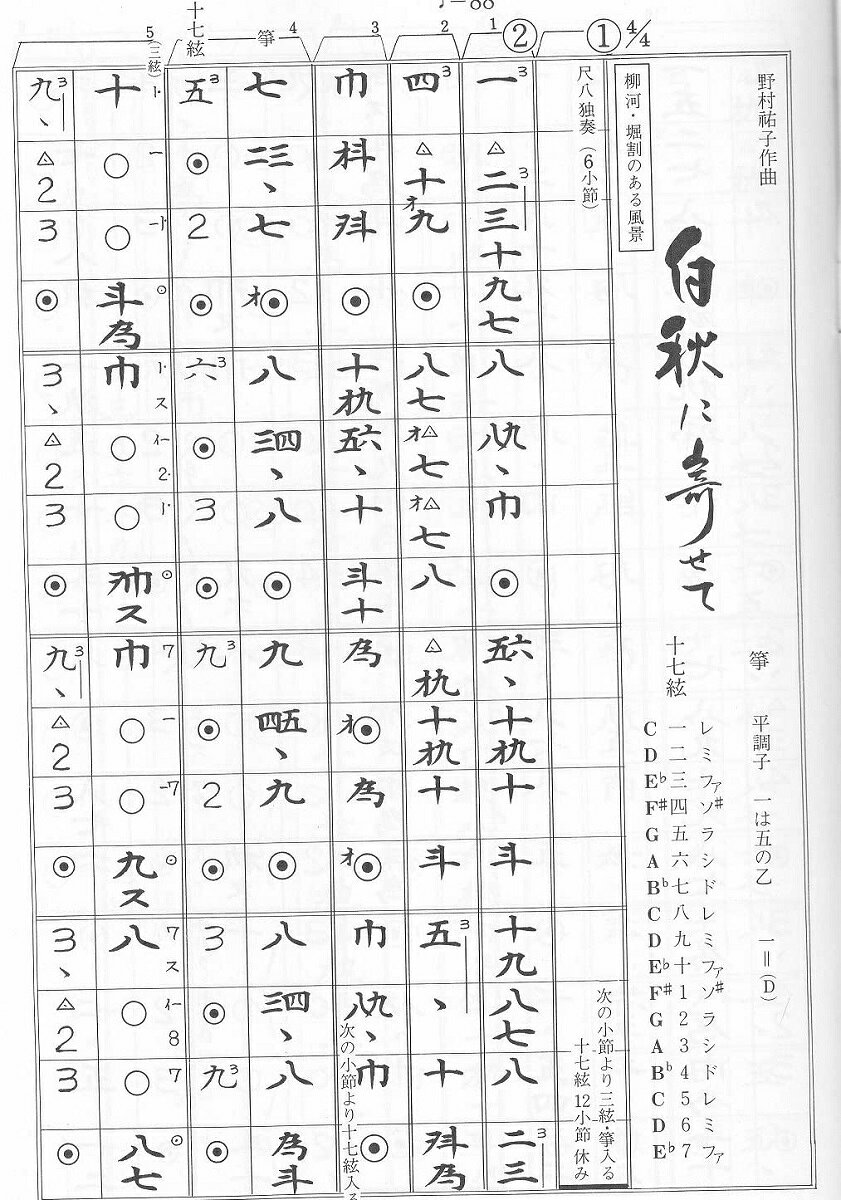 ♩=88
4/4
①
②
1
2
3
4
5
箏
十七絃
(三絃)
野村祐子作曲
白秋に寄せて
柳河・堀割のある風景
箏 平調子 一は五の乙 一=(D)
十七絃
C 一 レ
D 二 ミ
E♭ 三 ファ
F# 四 ソ#
G 五 ラ
A 六 シ
B♭ 七 ド
C 八 レ
D 九 ミ
E♭ 十 ファ
F# 1 ソ#
G 2 ラ
A 3 シ
B♭ 4 ド
C 5 レ
D 6 ミ
E♭ 7 ファ
尺八独奏(6小節)
次の小節より三絃・箏入る
十七絃12小節休み
一3
△二3
三十
九七
八
八九、
巾
◉
五六、
十九
十
斗
十九
八七
八
二三3
四3
△十
オ九
◉
八七
オ△七
オ△七
八
△
十
十
斗
五3
、
十
為
巾
◉
十
五六、
十
斗十
為
オ◉
為
オ◉
巾
八九、
巾
◉
次の小節より十七絃入る
七
二三、
七
オ◉
八
三四、
八
◉
九
四五、
九
◉
八
三四、
八
為斗
五3
◉
2
◉
六3
◉
3
◉
九3
◉
2
◉
3
◉
九3
◉
十
○
○
斗為
巾 ス
○ 2
○
ス
巾 7
○
○ 7
九ス
八 7 ス
○ 8
○ 7
八七
九3、
△2
3
◉
3、
△2
3
◉
九3、
△2
3
◉
3、
△2
3
◉